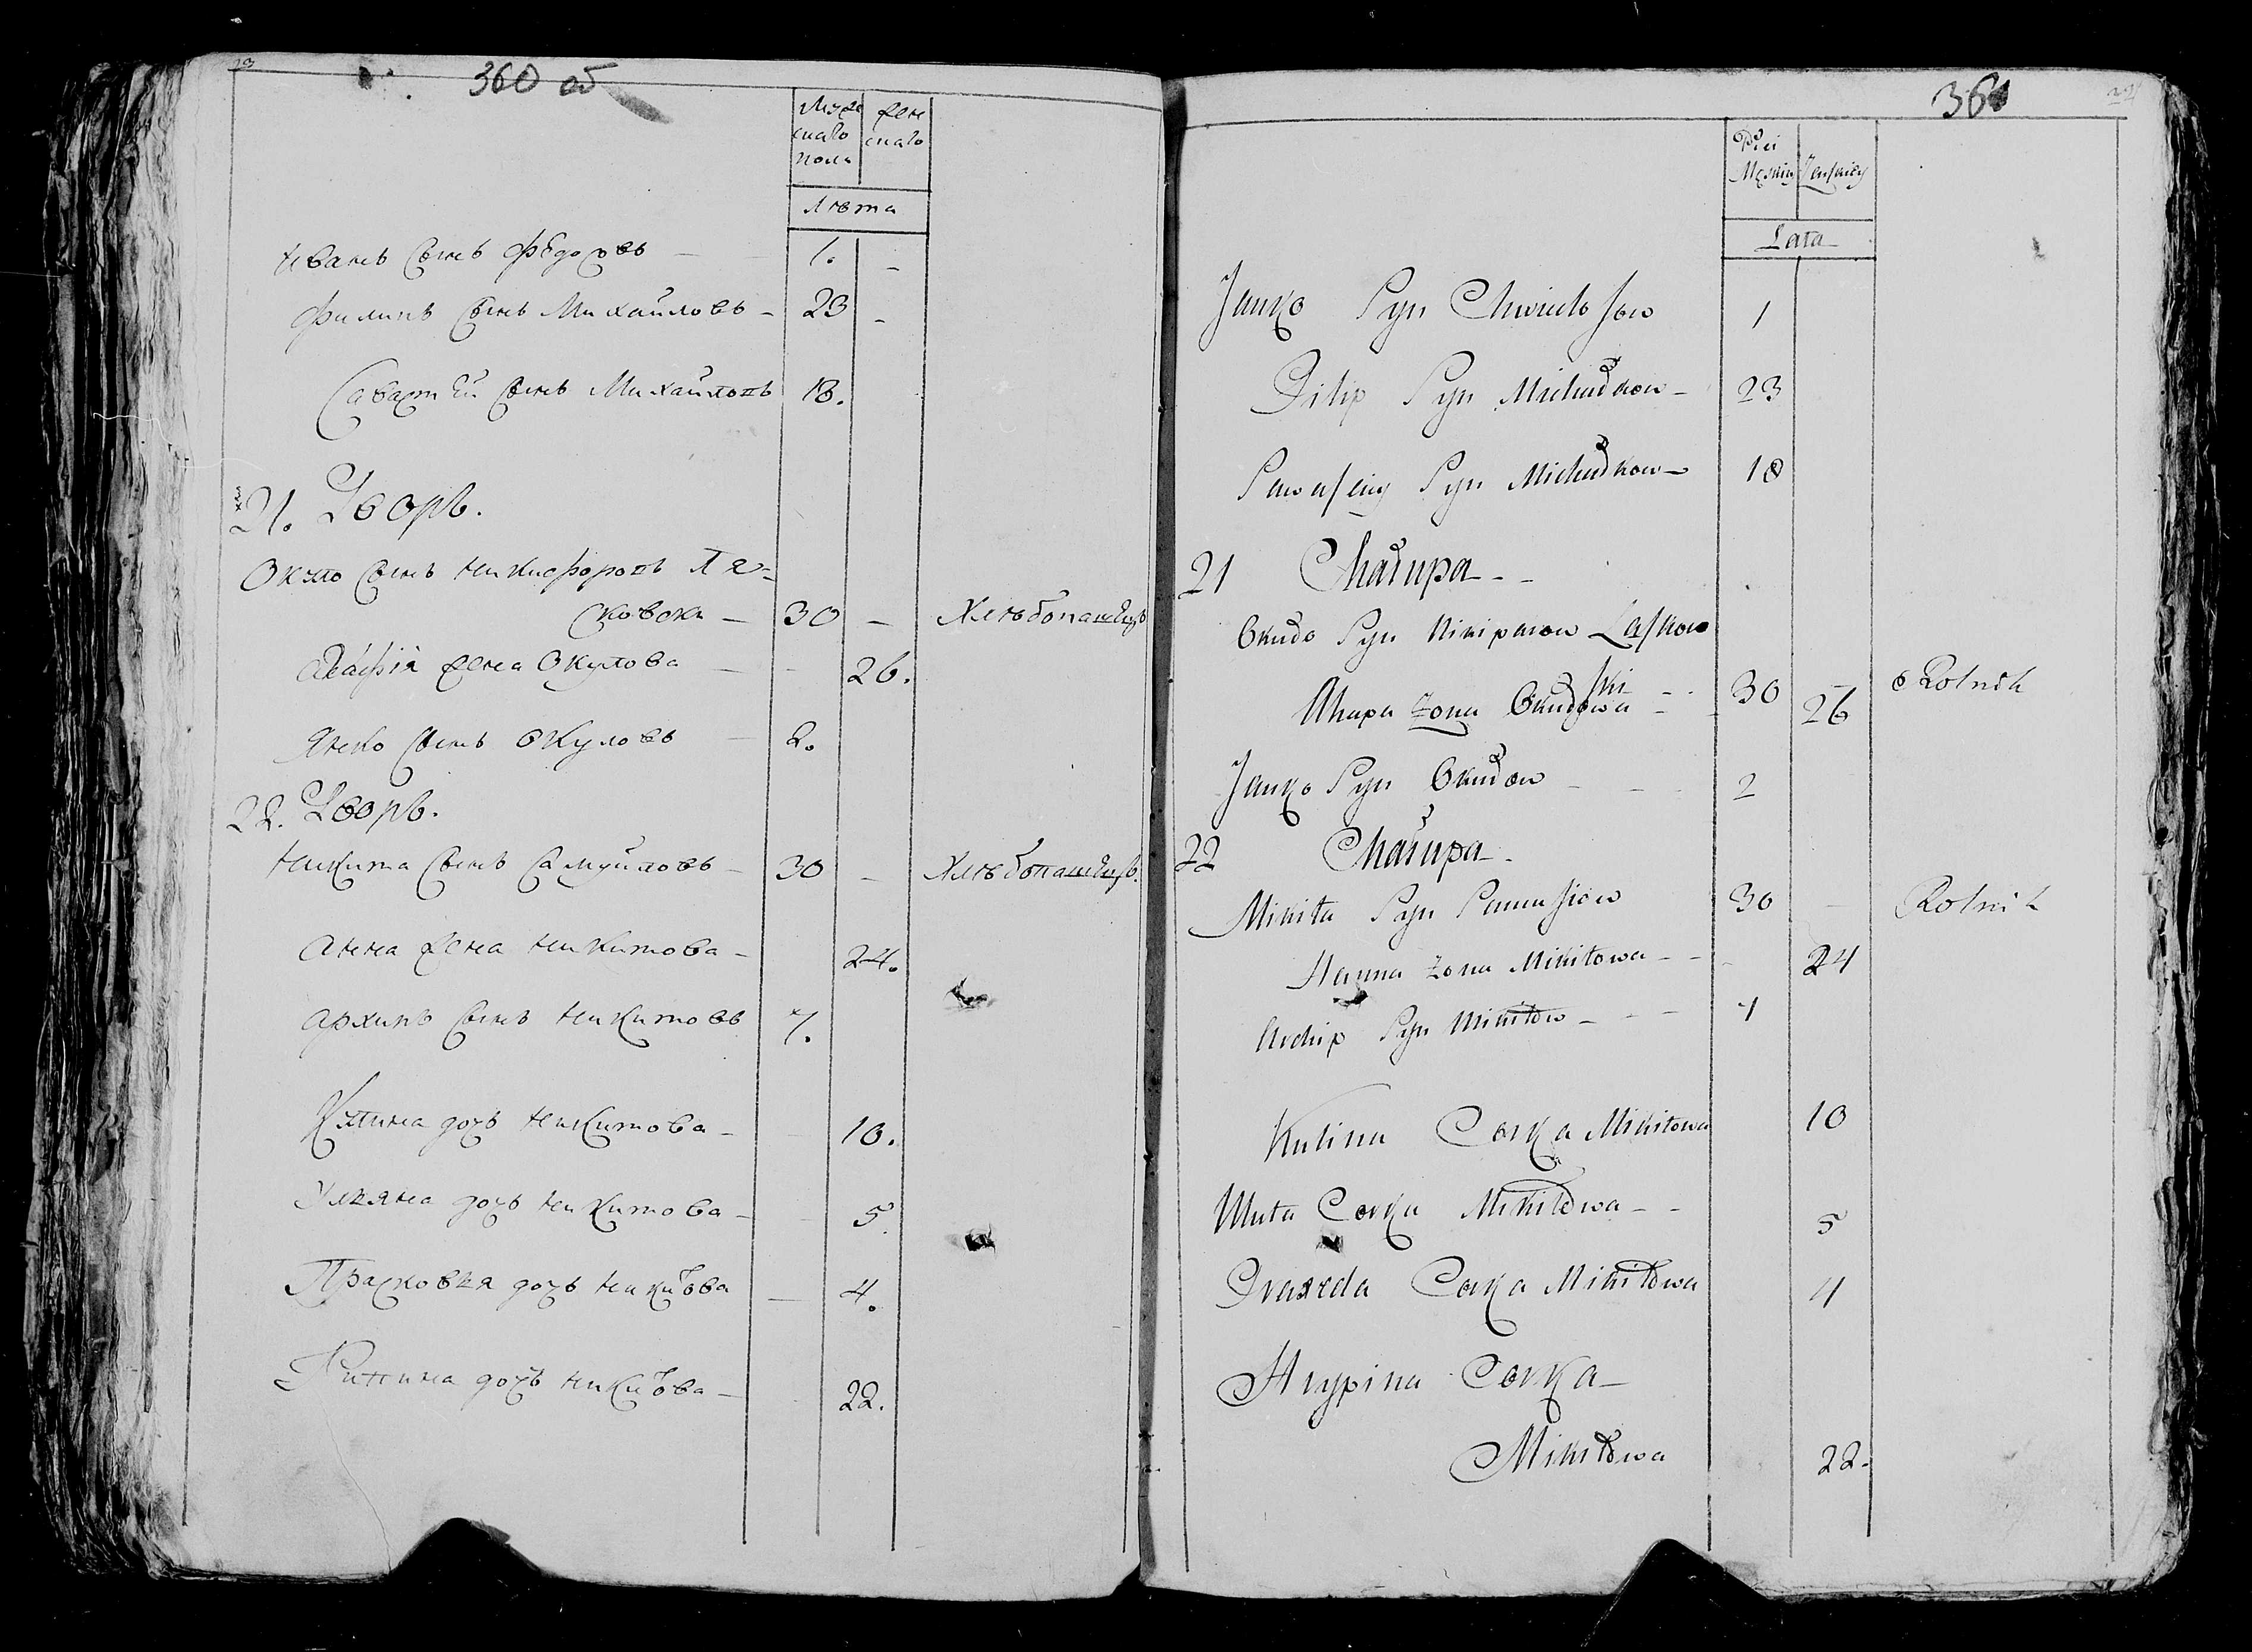 360 об
Муже
скаго
пола
жен
скаго
Лѣта
Иванъ сынъ Федоровъ — 1. —
Филипъ сынъ Михайловъ — 23 —
Савастѣй сынъ Михайловъ 18.
21. Дворъ.
Окуло сынъ Никифоровъ Ля=
сковски — 30 — Хлѣбопашецъ
Агафія жена Окулова — 26.
Янко сынъ Окуловъ — 2.
22. Дворъ.
Никита сынъ Самуйловъ — 30 — Хлѣбопашецъ.
Анна жена Никитова — 24.
Архипъ сынъ Никитовъ 7.
Кулина дочь Никитова — 10.
Улзяна дочь Никитова — 5.
Прасковья дочь Никитова — 4.
дочь Никитова — 22.
361
Płci
Męskiey Żenskiey
Lata
Janko Syn Chwiedorow 1
Pilip Syn Michałkow — 23
Sawasciey Syn Michałkow — 18
21 Chałupa - -
Okuło Syn Nikiparow Laskow
ski - - 30 — Rolnik
Ahapa Żona Okułowa - - 26
Janko Syn Okułow - - - 2
22 Chałupa -
Mikita Syn Samusiow 30 — Rolnik
Hanna Żona Mikitowa - - - 24
Archip Syn Mikitow - - - 7
Kulina Corka Mikitowa 10
Uluta Corka Mikitowa - - 5
Praxeda Corka Mikitowa 4
Hrypina Corka —
Mikitowa 22.